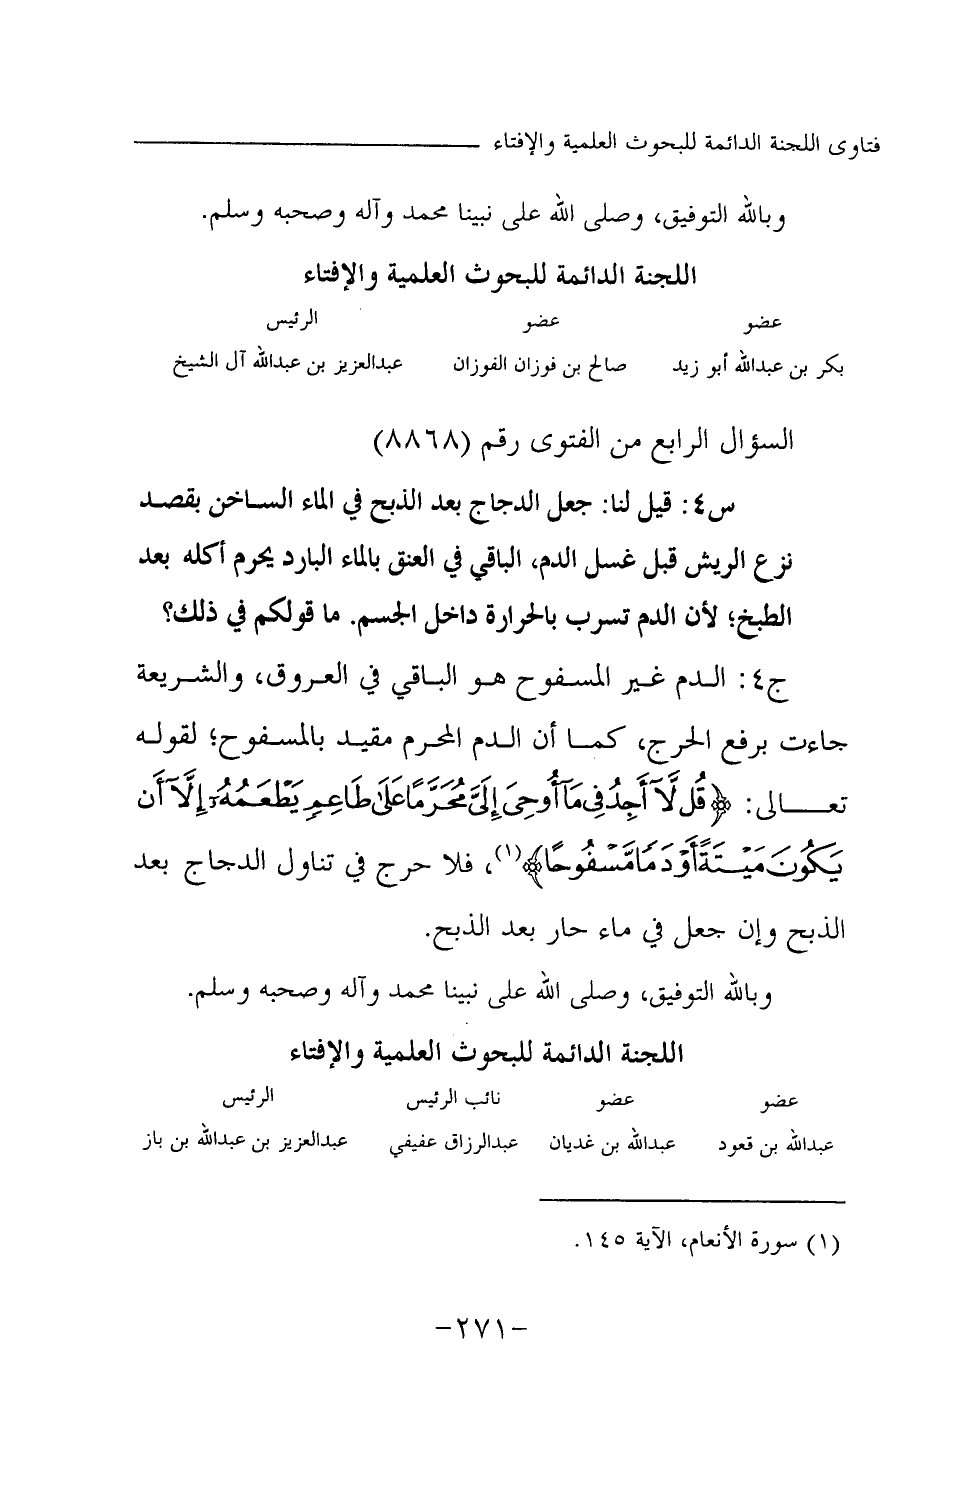 فتاوى اللجنة الدائمة للبحوث العلمية والإفتاء
وبالله التوفيق، وصلى الله على نبينا محمد وآله وصحبه وسلم.
اللجنة الدائمة للبحوث العلمية والإفتاء
عضو عضو الرئيس
بكر بن عبدالله أبو زيد صالح بن فوزان الفوزان عبدالعزيز بن عبدالله آل الشيخ
السؤال الرابع من الفتوى رقم (٨٨٦٨)
س٤: قيل لنا: جعل الدجاج بعد الذبح في الماء الساخن بقصد
نزع الريش قبل غسل الدم، الباقي في العنق بالماء البارد يحرم أكله بعد
الطبخ؛ لأن الدم تسرب بالحرارة داخل الجسم. ما قولكم في ذلك؟
ج٤: الدم غير المسفوح هو الباقي في العروق، والشريعة
جاءت برفع الحرج، كما أن الدم المحرم مقيد بالمسفوح؛ لقوله
تعالى: ﴿قُل لَّآ أَجِدُ فِى مَآ أُوحِىَ إِلَىَّ مُحَرَّمًا عَلَىٰ طَاعِمٍ يَطْعَمُهُۥٓ إِلَّآ أَن
يَكُونَ مَيْتَةً أَوْ دَمًا مَّسْفُوحًا﴾(١)، فلا حرج في تناول الدجاج بعد
الذبح وإن جعل في ماء حار بعد الذبح.
وبالله التوفيق، وصلى الله على نبينا محمد وآله وصحبه وسلم.
اللجنة الدائمة للبحوث العلمية والإفتاء
عضو عضو نائب الرئيس الرئيس
عبدالله بن قعود عبدالله بن غديان عبدالرزاق عفيفي عبدالعزيز بن عبدالله بن باز
(١) سورة الأنعام، الآية ١٤٥.
-٢٧١-